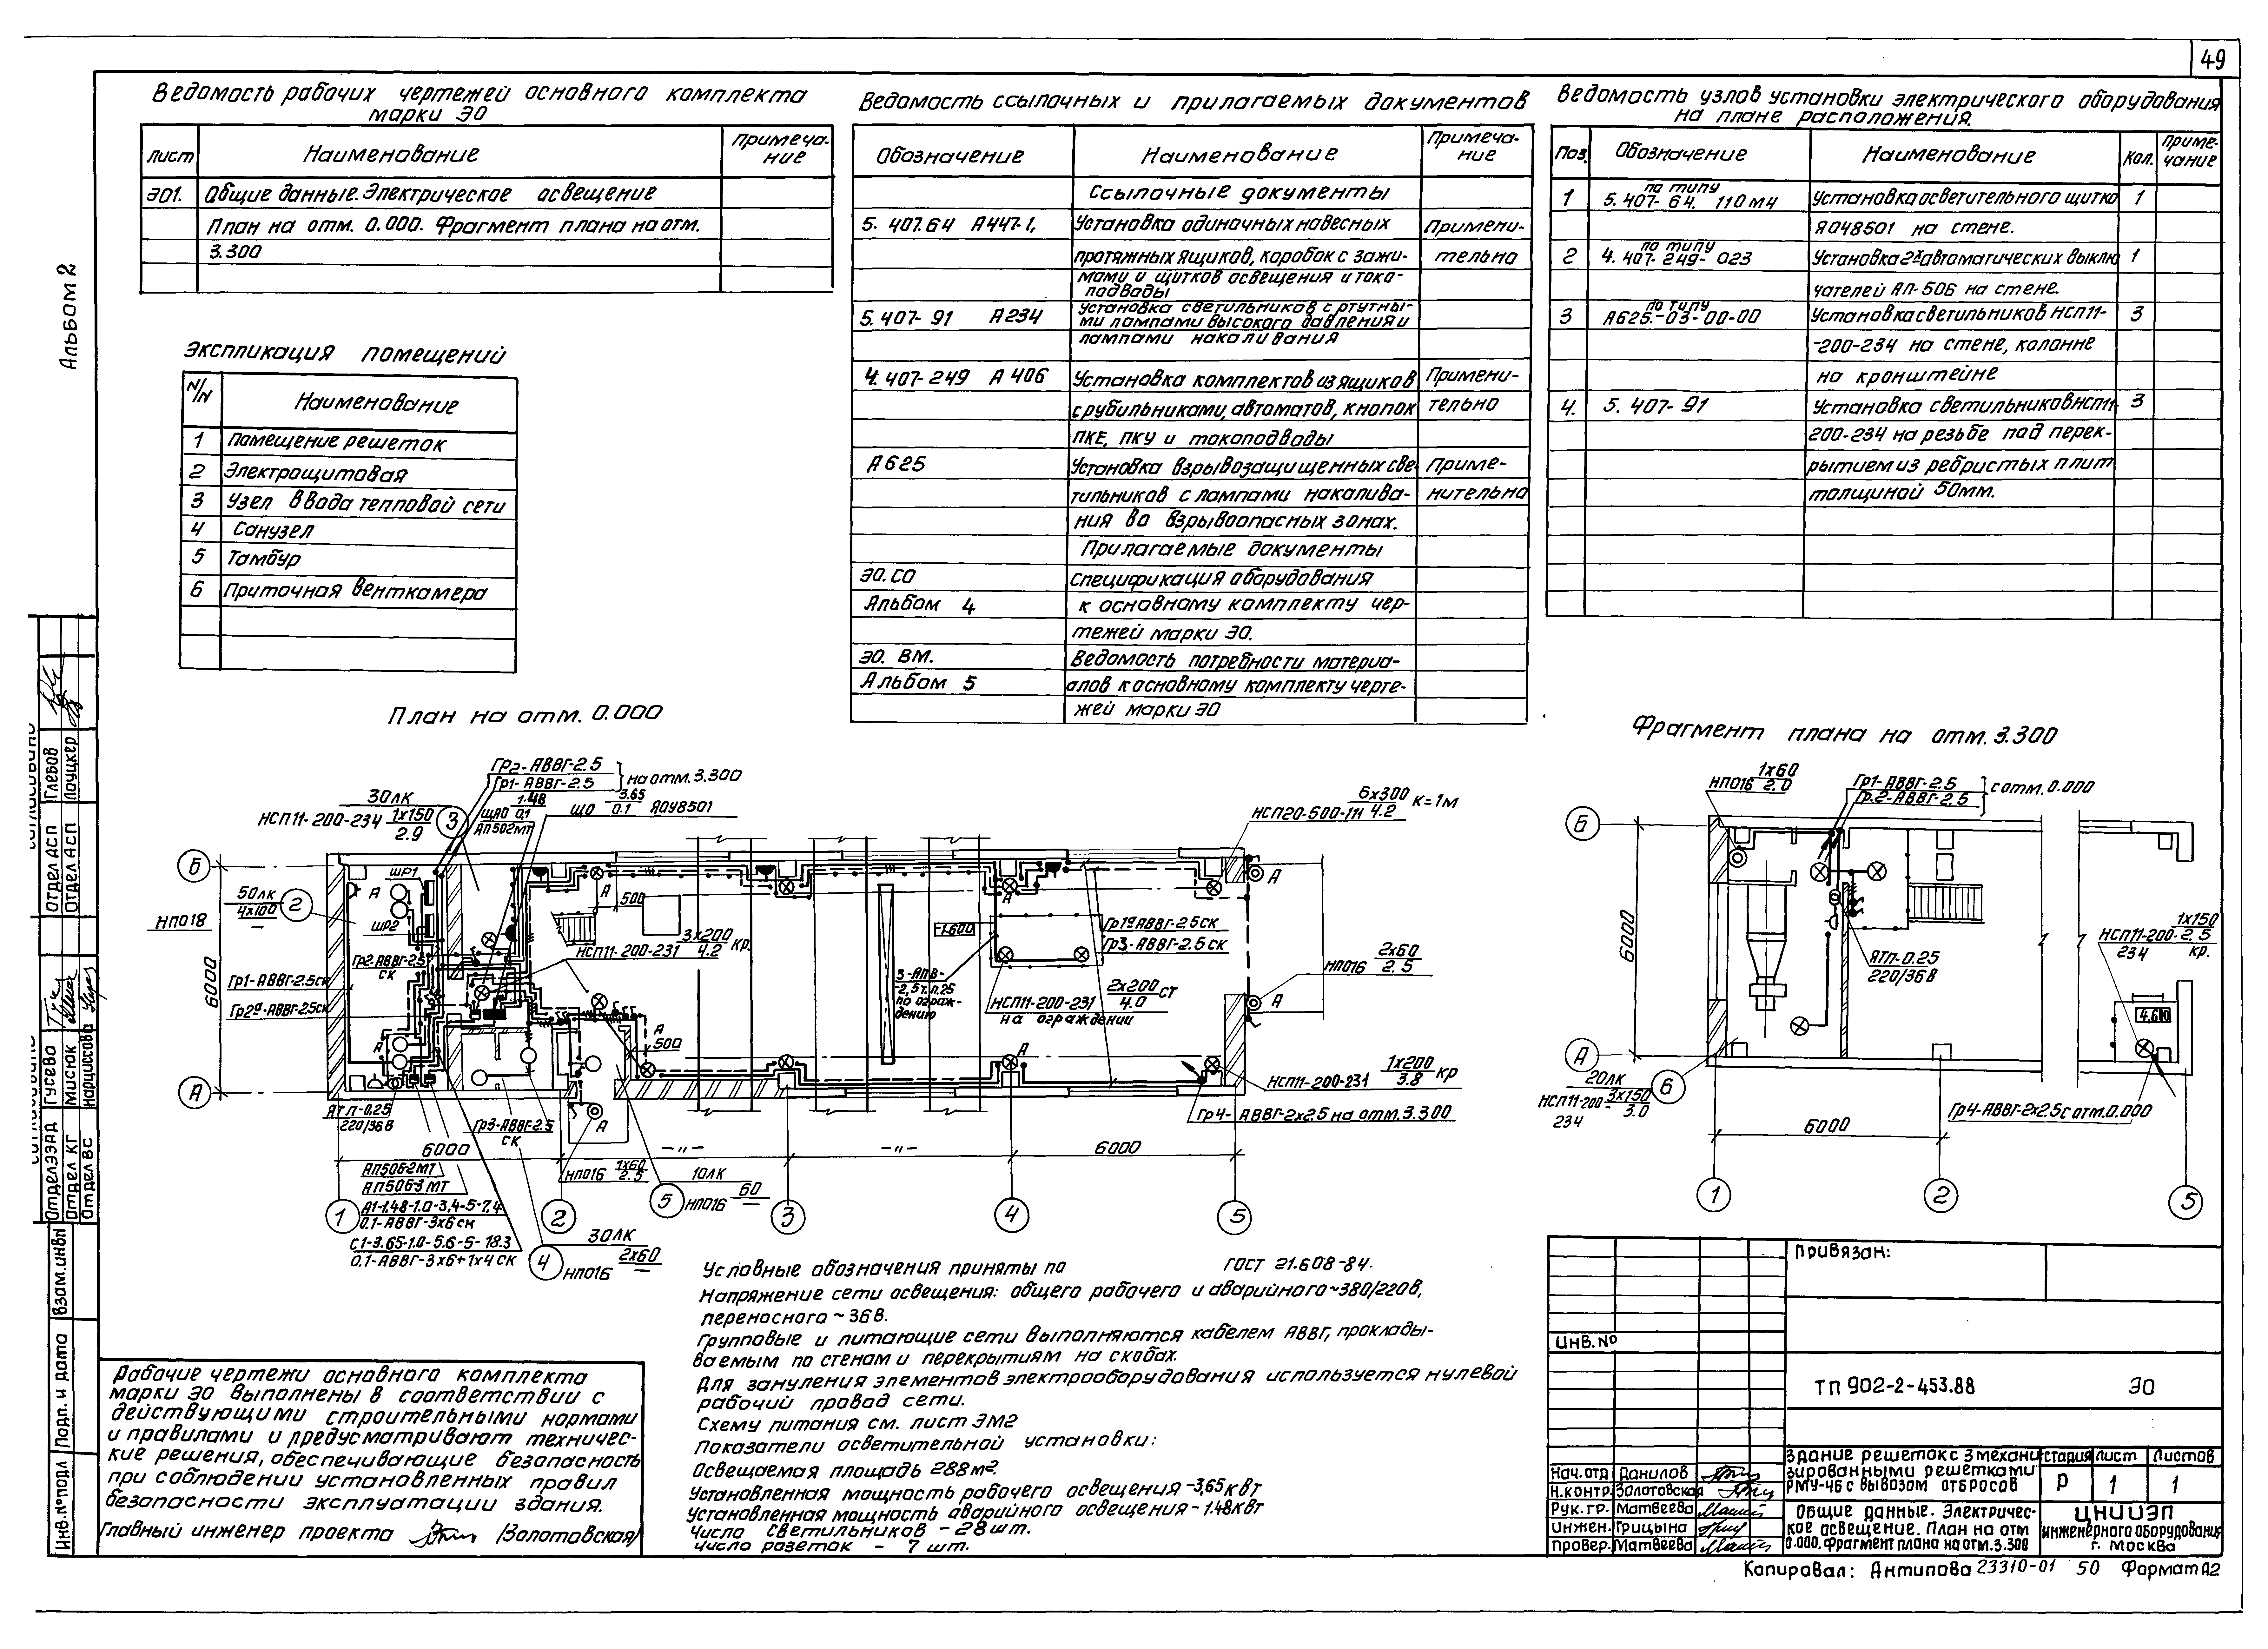 49
Альбом 2
Ведомость рабочих чертежей основного комплекта
марки ЭО
Лист Наименование Примеча-
ние
ЭО1. Общие данные. Электрическое освещение
План на отм. 0.000. Фрагмент плана на отм.
3.300
Экспликация помещений
N/N Наименование
1 Помещение решеток
2 Электрощитовая
3 Узел ввода тепловой сети
4 Санузел
5 Тамбур
6 Приточная венткамера
Ведомость ссылочных и прилагаемых документов
Обозначение Наименование Примеча-
ние
Ссылочные документы
5.407.64 А447-1, Установка одиночных навесных Примени-
протяжных ящиков, коробок с зажи- тельно
мами и щитков освещения и токо-
подводы
5.407-91 А234 Установка светильников с ртутны-
ми лампами высокого давления и
лампами накаливания
4.407-249 А 406 Установка комплектов из ящиков Примени-
с рубильниками, автоматов, кнопок тельно
ПКЕ, ПКУ и токоподводы
А625 Установка взрывозащищенных све- Приме-
тильников с лампами накалива- нительно
ния во взрывоопасных зонах.
Прилагаемые документы
ЭО.СО Спецификация оборудования
Альбом 4 к основному комплекту чер-
тежей марки ЭО.
ЭО. ВМ. Ведомость потребности материа-
Альбом 5 алов к основному комплекту черте-
жей марки ЭО
Ведомость узлов установки электрического оборудования
на плане расположения.
Поз. Обозначение Наименование Кол. Приме-
чание
1 по типу
5.407-64. 110м4 Установка осветительного щитка 1
ЯОУ8501 на стене.
2 по типу
4.407-249-023 Установка 2х автоматических выклю 1
чателей АП-50Б на стене.
3 по типу
А625.-03-00-00 Установка светильников НСП11- 3
-200-234 на стене, колонне
на кронштейне
4. 5.407-91 Установка светильников НСП11- 3
200-234 на резьбе под перек-
рытием из ребристых плит
толщиной 50мм.
План на отм. 0.000
Гр2-АВВГ-2.5
Гр1-АВВГ-2.5
на отм. 3.300
30ЛК
НСП11-200-234 1х150
2.9
3
1.48
ЩАО 0,1
АП502МТ
3.65
ЩО 0.1 ЯОУ8501
6х300 К=1м
НСП20-500-111 4.2
Б
50ЛК 2
4х100
—
НПО18
ШР1
ШР2
А
А
500
Гр2-АВВГ-2.5
СК
Гр1-АВВГ-2.5СК
Гр2а-АВВГ-2.5СК
6000
3х200 Кр.
НСП11-200-231 4.2
-1.600
Гр1а АВВГ-2.5СК
Гр3-АВВГ-2.5СК
3-АПВ-
-2,5 т.п.25
по ограж-
дению
2х200 СТ
НСП11-200-231 4.0
на ограждении
2х60
НПО16 2.5
А
А
А
А
А
500
А
А
1х200 Кр
НСП11-200-231 3.8
Гр4-АВВГ-2х2.5 на отм. 3.300
ЯТП-0.25
220/36В
Гр3-АВВГ-2.5
СК
А
6000 -"- -"- 6000
АП50Б2МТ
АП50Б3МТ
НПО16 1х60
2.5
10ЛК
5 НПО16 60
—
1 2 3 4 5
А1-1.48-1.0-3,4-5-7,4
0.1-АВВГ-3х6СК
С1-3.65-1.0-5.6-5-18.3
0.1-АВВГ-3х6+1х4 СК
30ЛК
4 НПО16 2х60
—
Фрагмент плана на отм. 3.300
1х60
НПО16 2.0
Гр1-АВВГ-2.5
Гр.2-АВВГ-2.5
с отм. 0.000
Б
6000
ЯТП-0.25
220/36В
1х150
НСП11-200-2.5
234 кр.
4.600
А
20ЛК
НСП11-200- 3х150
234 3.0
6
Гр4-АВВГ-2х2.5 с отм. 0.000
6000
1 2 5
Условные обозначения приняты по ГОСТ 21.608-84.
Напряжение сети освещения: общего рабочего и аварийного ~380/220В,
переносного ~36В.
Групповые и питающие сети выполняются кабелем АВВГ, проклады-
ваемым по стенам и перекрытиям на скобах.
Для зануления элементов электрооборудования используется нулевой
рабочий провод сети.
Схему питания см. лист ЭМ2
Показатели осветительной установки:
Освещаемая площадь 288м².
Установленная мощность рабочего освещения -3,65кВт
Установленная мощность аварийного освещения -1.48кВт
Число светильников - 28шт.
Число розеток - 7 шт.
Рабочие чертежи основного комплекта
марки ЭО выполнены в соответствии с
действующими строительными нормами
и правилами и предусматривают техничес-
кие решения, обеспечивающие безопасность
при соблюдении установленных правил
безопасности эксплуатации здания.
Главный инженер проекта /Золотовская/
Согласовано
Отдел АСП Глебов
Отдел АСП Лоцкер
Отдел ЭЭАД Гусева
Отдел КГ Мисюк
Отдел ВС Нарциссова
Взам.инвN
Подп. и дата
Инв.N подл
Привязан:
Инв.No
ТП 902-2-453.88 ЭО
Нач.отд Данилов
Н.контр. Золотовская
Рук.гр. Матвеева
Инжен. Грицына
Провер. Матвеева
Здание решеток с 3 механи
зированными решетками
РМУ-4Б с вывозом отбросов
Стадия Лист Листов
Р 1 1
Общие данные. Электричес-
кое освещение. План на отм
0.000. Фрагмент плана на отм. 3.300
ЦНИИЭП
инженерного оборудования
г. Москва
Копировал: Антипова 23310-01 50 Формат А2